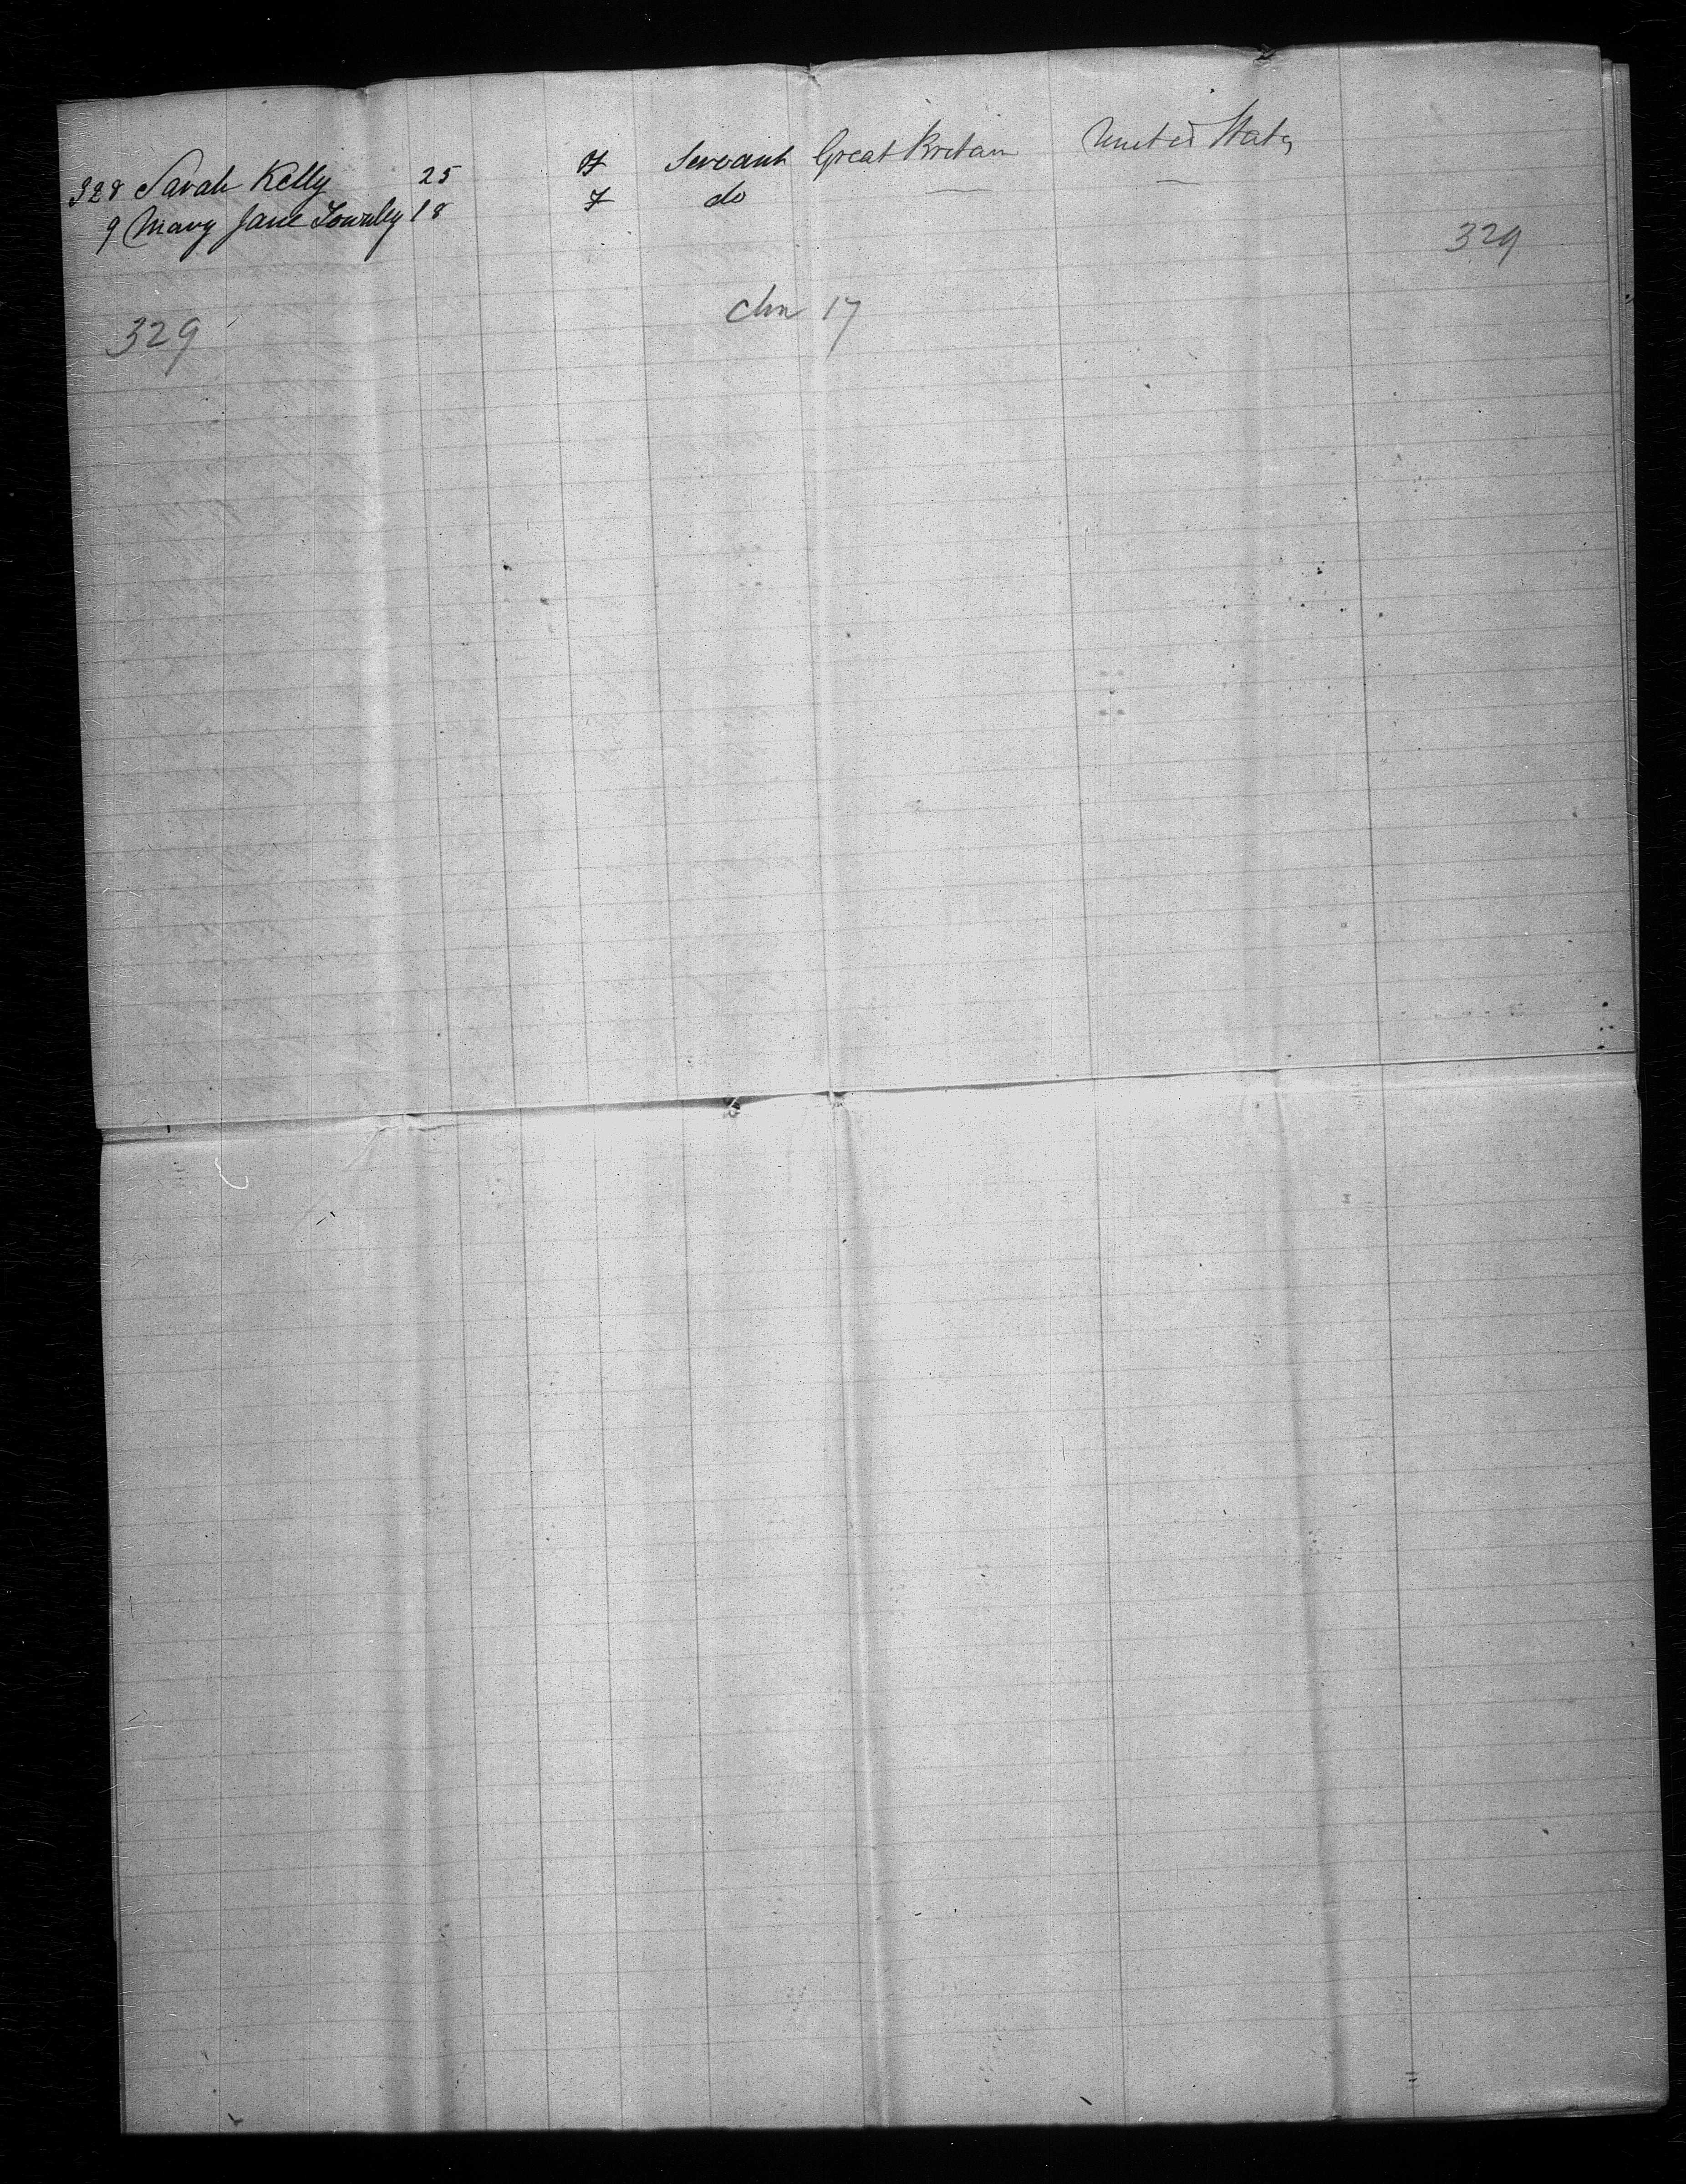 328 Sarah Kelly 25 F Servant Great Britain United States
9 Mary Jane Townley 18 F do — —
329
chn 17
329